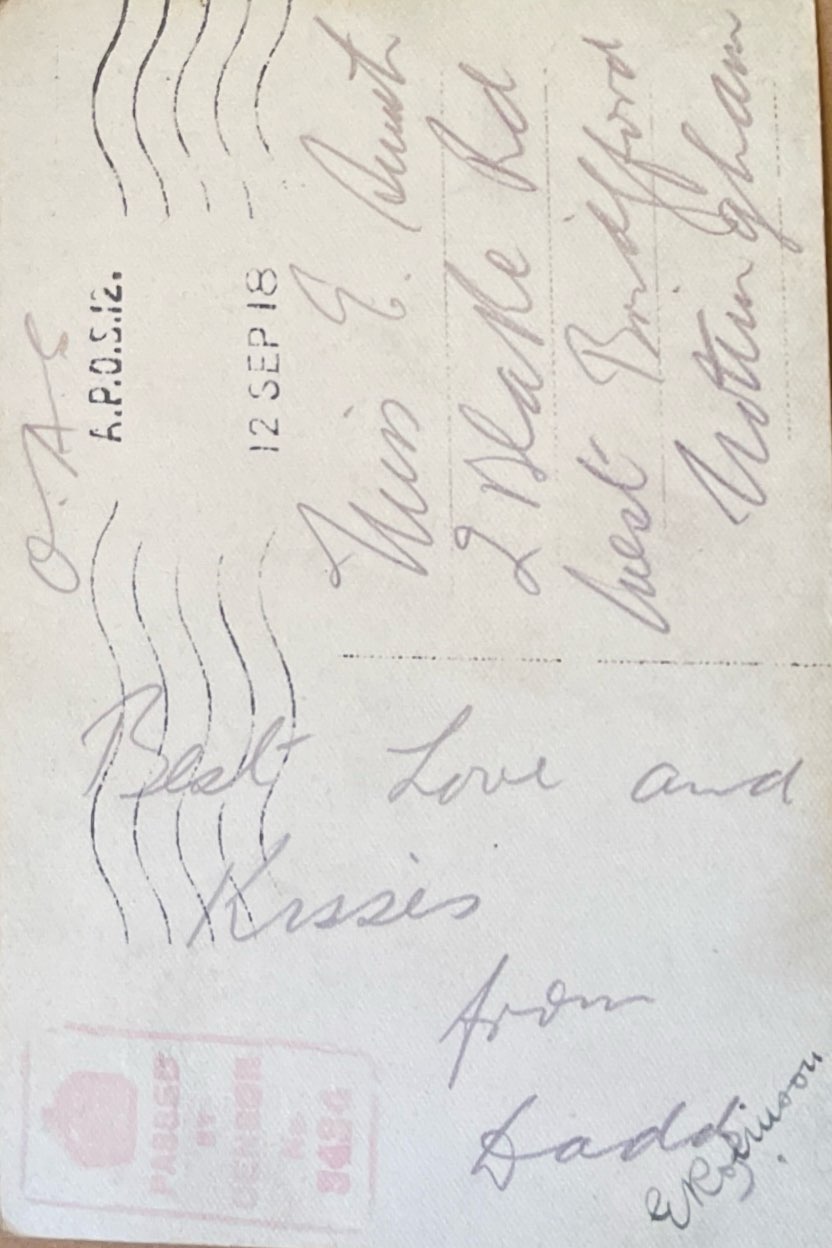 O.A.S
A.P.O.S.12.
12 SEP 18
Miss E.
2 Blake Rd
West Bridgford
Nottingham
Best Love and
Kisses
from
Dadd
E Robinson
PASSED
BY
CENSOR
No